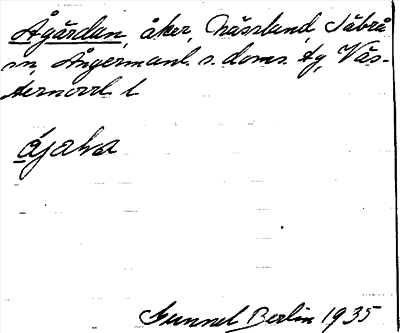 Ågärdan, åker, Nässland, Säbrå
sn, Ångermanl. s. doms. tg, Väs-
ternorrl. l.
Gunnel Berlin 1935